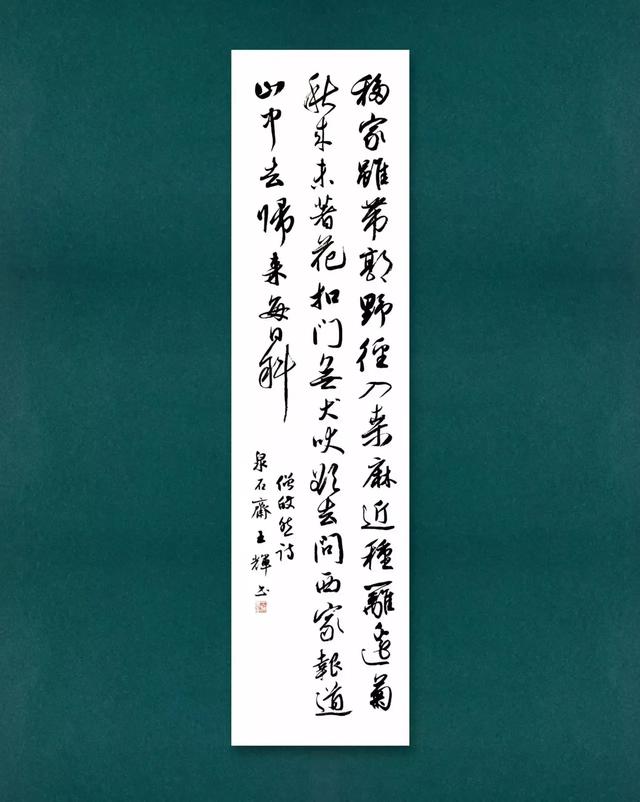 移家雖带郭野徑入桑麻近種籬邊菊
秋来未著花扣门無犬吠欲去问西家報道
山中去歸来每日斜
僧皎然诗
泉石齋王輝书